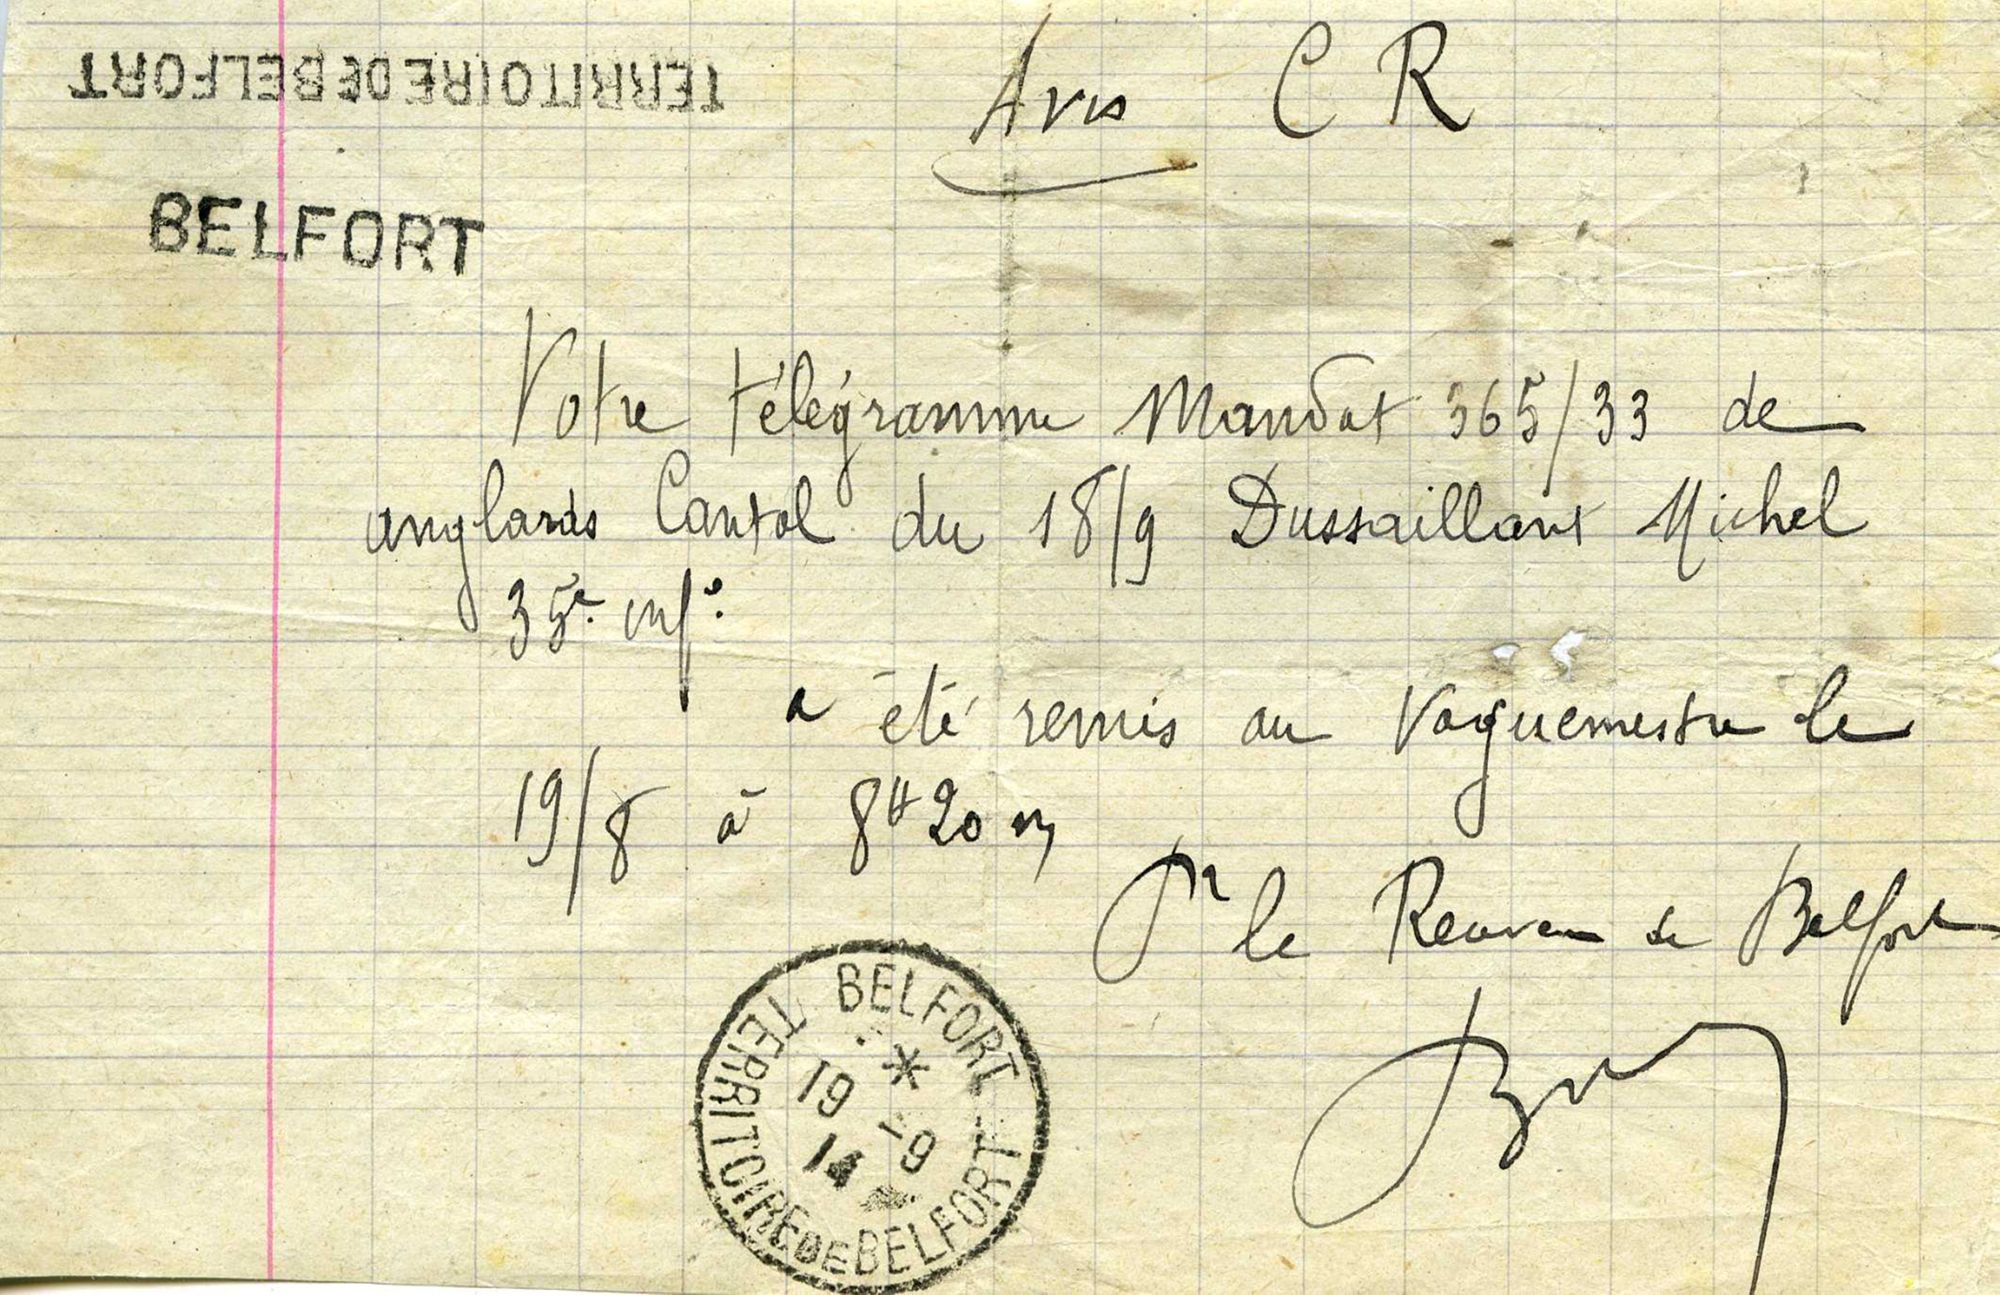 TERRITOIRE DE BELFORT
Avis C R
BELFORT
Votre télégramme Mandat 365/33 de
anglards Cantal du 18/9 Dussaillant Michel
35e. infie
a été remis au Vaguemestre le
19/8 à 8H20 m
Pr le Receveur de Belfort
BELFORT
19 - 9
14
TERRITOIRE DE BELFORT